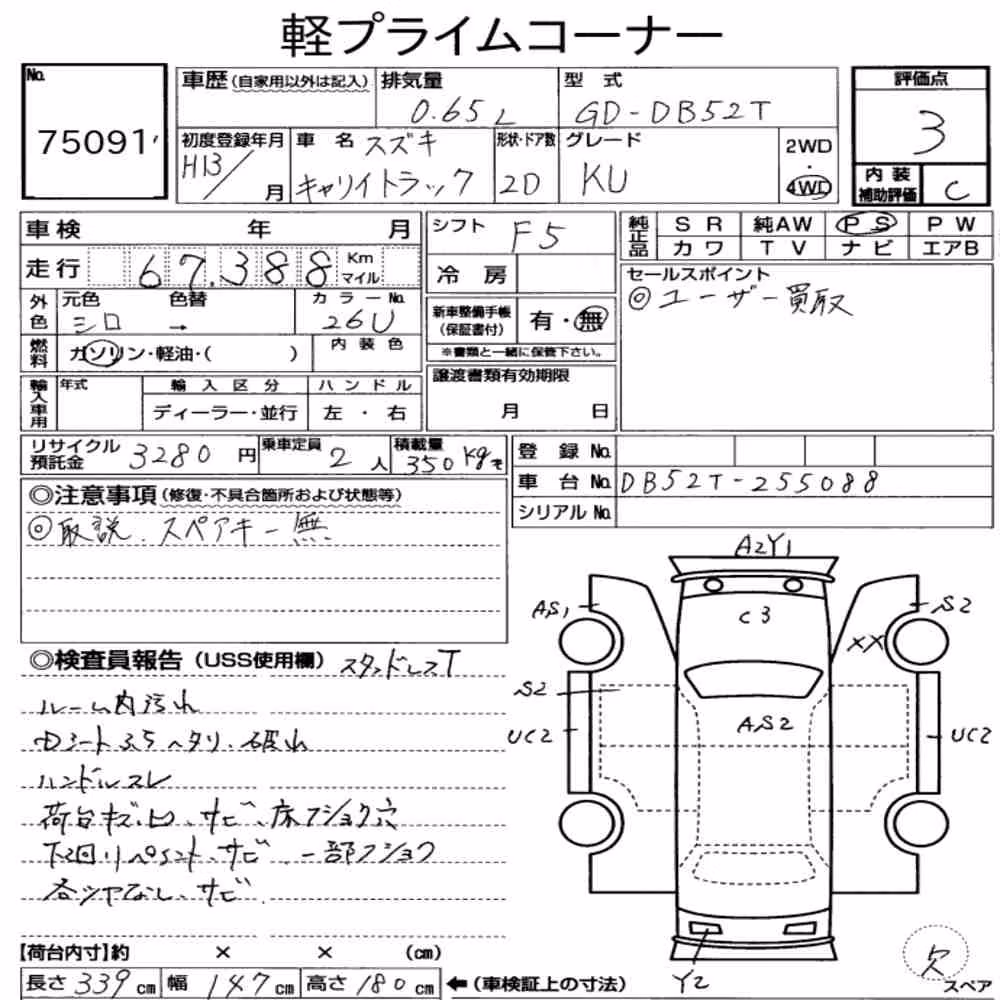 軽プライムコーナー
No. 75091
車歴 (自家用以外は記入) 排気量 0.65 L 型 式 GD-DB52T
評価点 3
初度登録年月 H13/ 月 車 名 スズキ キャリイトラック 形状・ドア数 2D グレード KU 2WD・4WD
内装補助評価 C
車検 年 月
走行 67,388 Km マイル
外色 元色 シロ 色替 → カラーNo. 26U
燃料 ガソリン・軽油・( ) 内装色
輸入車用 年式 輸入区分 ハンドル
ディーラー・並行 左・右
シフト F5
冷房
新車整備手帳 (保証書付) 有・無
※書類と一緒に保管下さい。
譲渡書類有効期限
月 日
純正品 SR 純AW PS PW
カワ TV ナビ エアB
セールスポイント
◎ユーザー買取
リサイクル預託金 3280 円 乗車定員 2 人 積載量 350 kg
登録No.
車台No. DB52T-255088
シリアルNo.
◎注意事項 (修復・不具合箇所および状態等)
◎取説、スペアキー無
◎検査員報告 (USS使用欄) スタッドレスT
ルーム内汚れ
ハンドルスレ
荷台キズ、凹、サビ、床フショク穴
下回りペイント、サビ 一部フショク
各ツヤなし、サビ
A2Y1
C3
AS1
S2
XX
S2
AS2
UC2
UC2
Y2
欠
スペア
【荷台内寸】約 × × (cm)
長さ 339 cm 幅 147 cm 高さ 180 cm ←(車検証上の寸法)